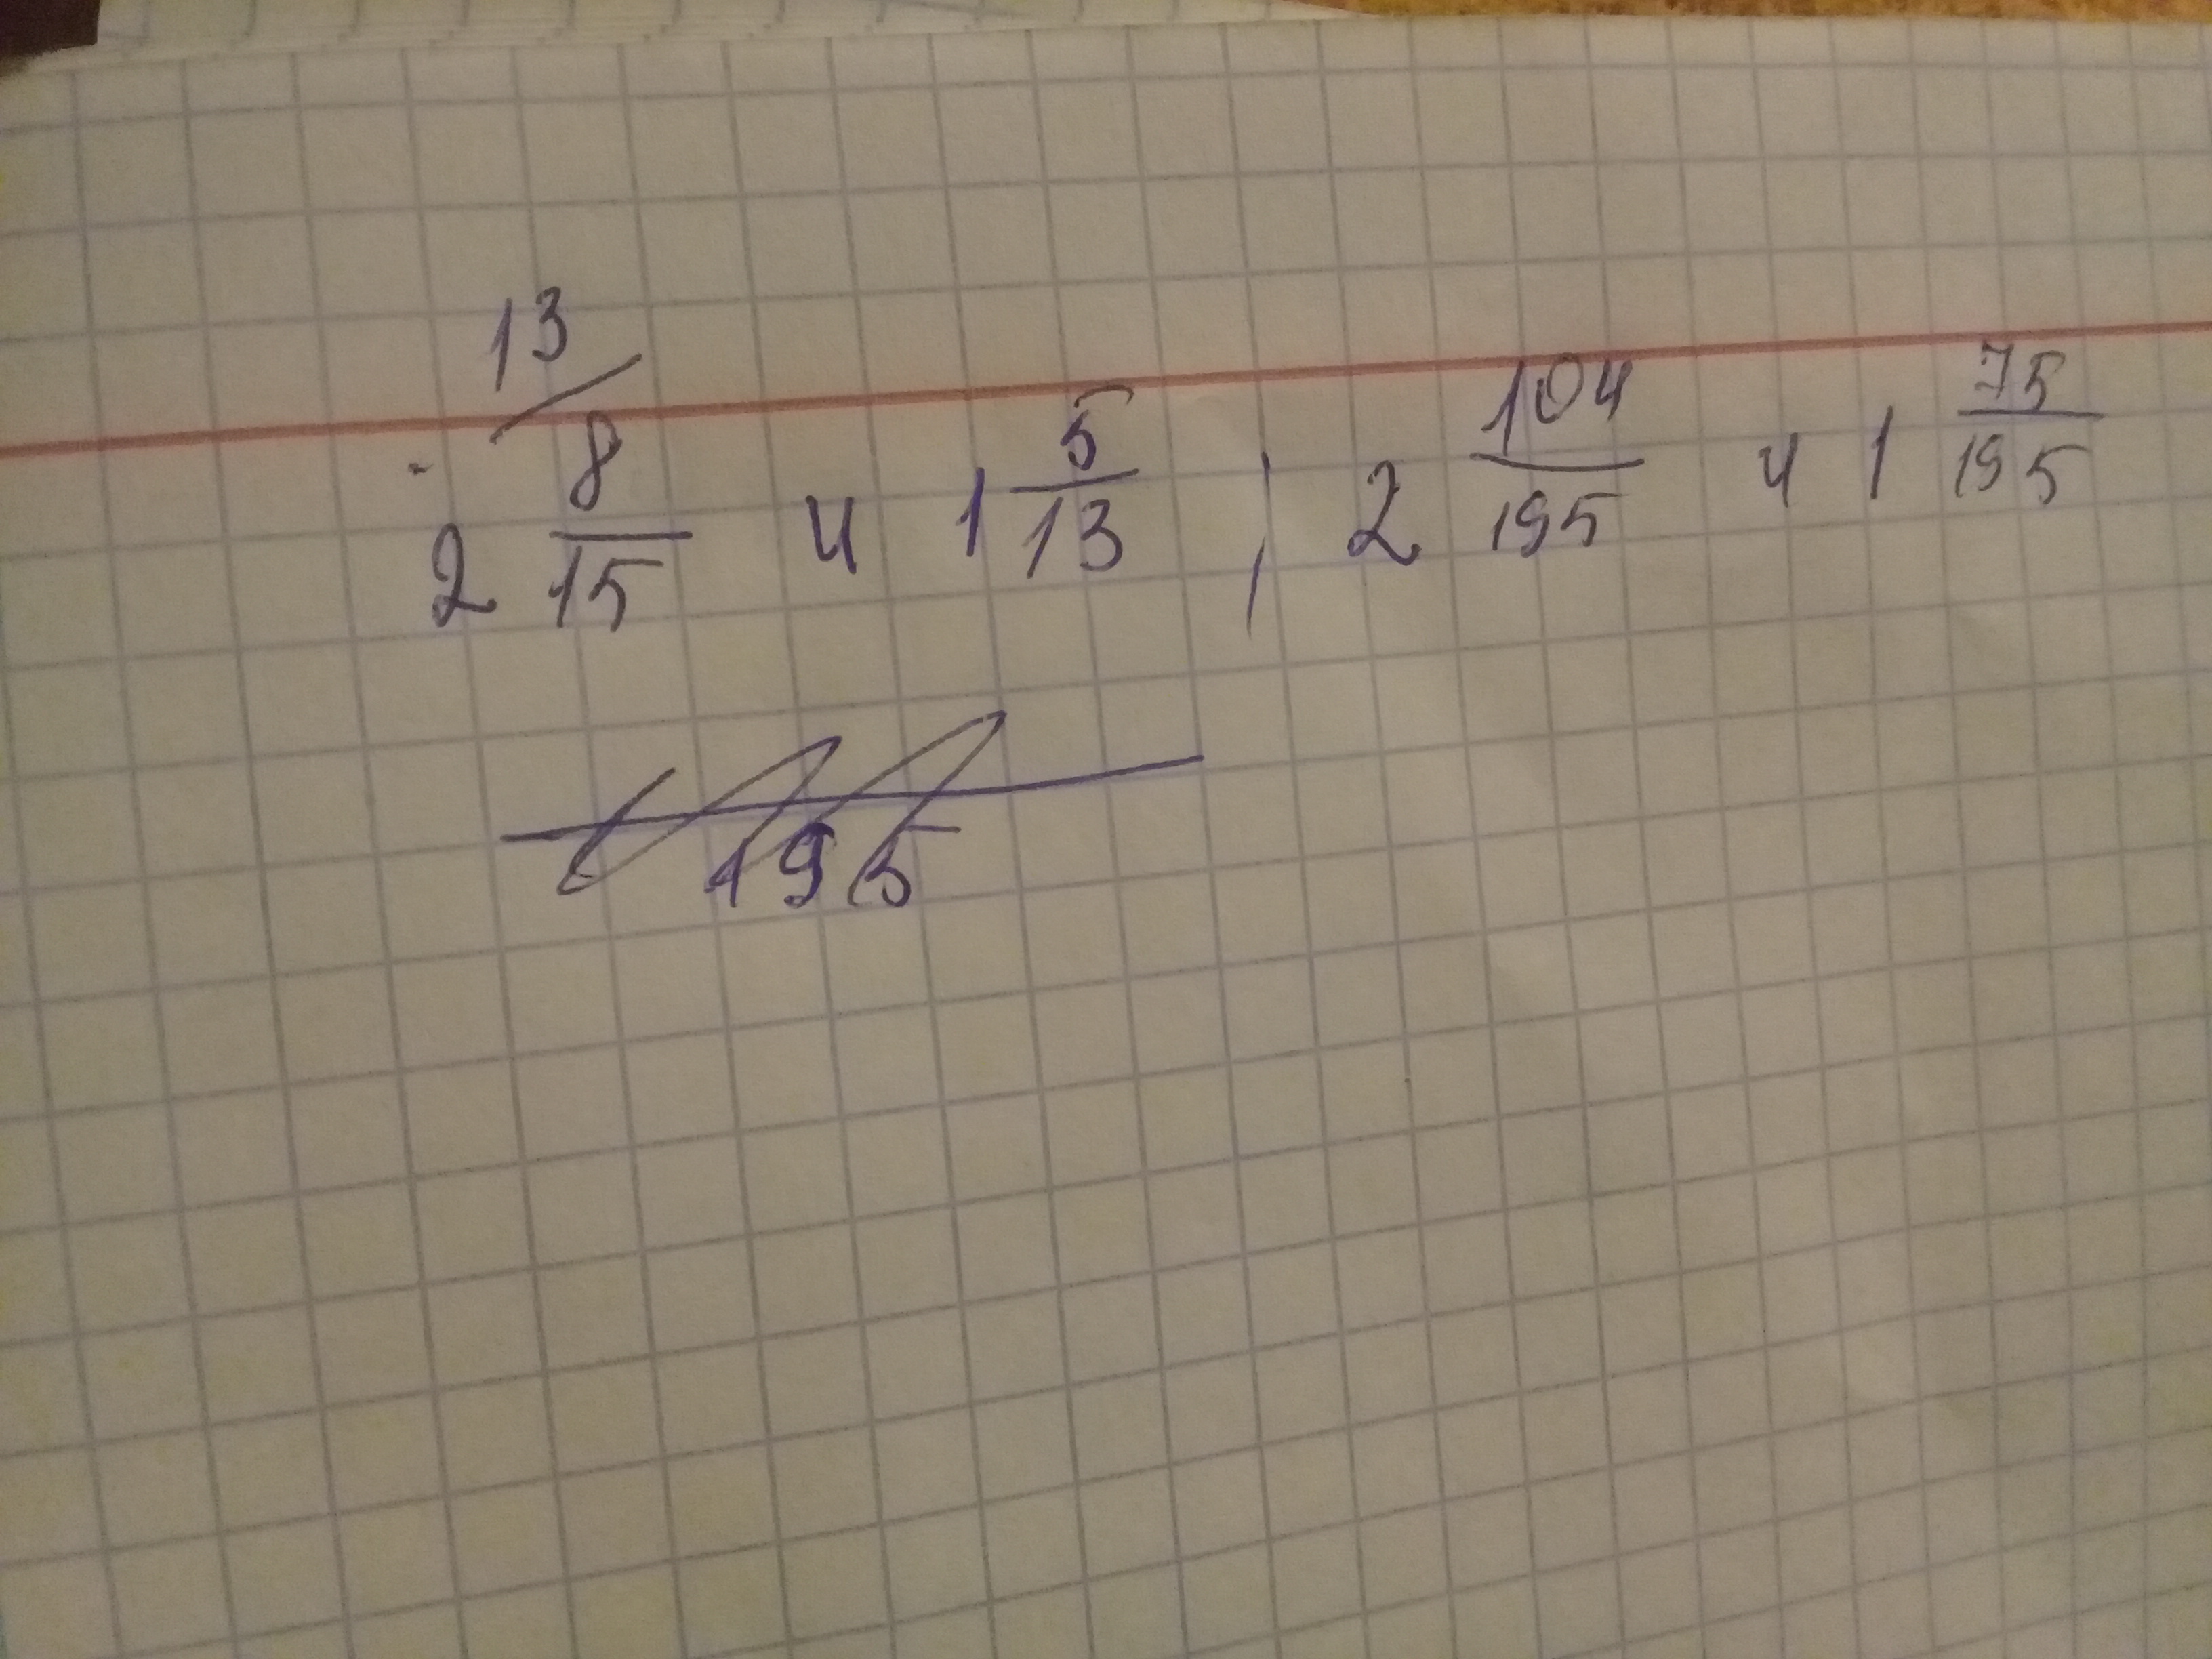 13
2 8/15 и 1 5/13 ; 2 104/195 и 1 75/195
195